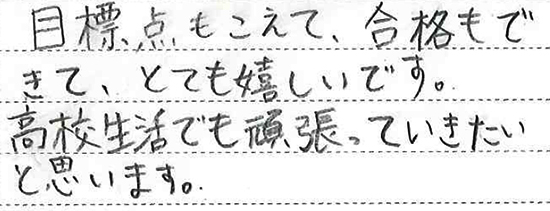 目標点もこえて、合格もで
きて、とても嬉しいです。
高校生活でも頑張っていきたい
と思います。